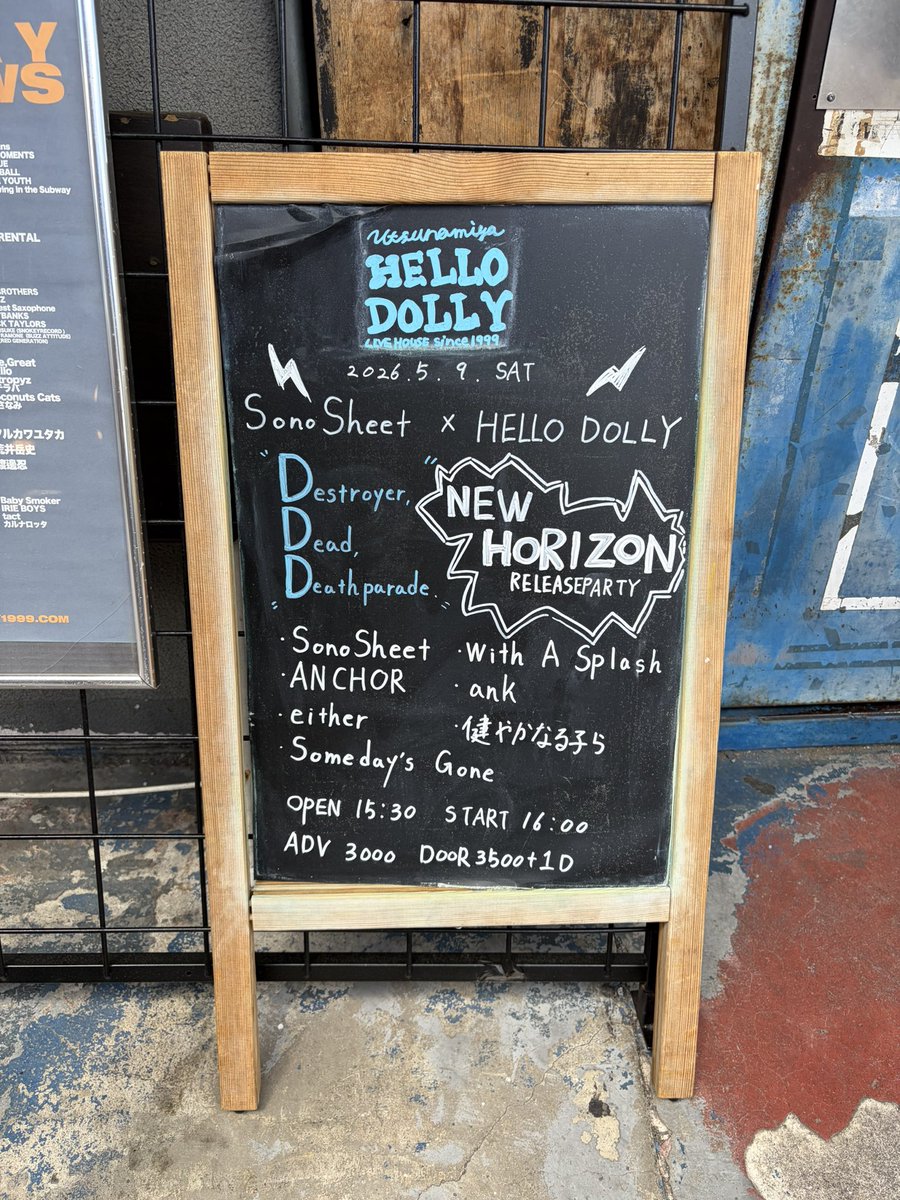 Y
WS
OMENTS
UE
BALL
YOUTH
ying in the Subway
RENTAL
BROTHERS
Z
est Saxophone
TBANKS
CK TAYLORS
ISUKE (SNOKEYRECORD)
RAMONE (BUZZ ATTITUDE)
(RED GENERATION)
e,Great
llo
tropyz
テラバ
oconuts Cats
さなみ
ツルカワユタカ
荒井岳史
渡邊忍
Baby Smoker
IRIE BOYS
tact
カルナロッタ
1999.COM
Utsunomiya
HELLO
DOLLY
LIVE HOUSE since 1999
2026.5.9. SAT
SonoSheet × HELLO DOLLY
"Destroyer,
Dead,
Deathparade."
NEW
HORIZON
RELEASEPARTY
・SonoSheet
・ANCHOR
・either
・Someday's Gone
・With A Splash
・ank
・健やかなる子ら
OPEN 15:30 START 16:00
ADV 3000 DOOR 3500+1D